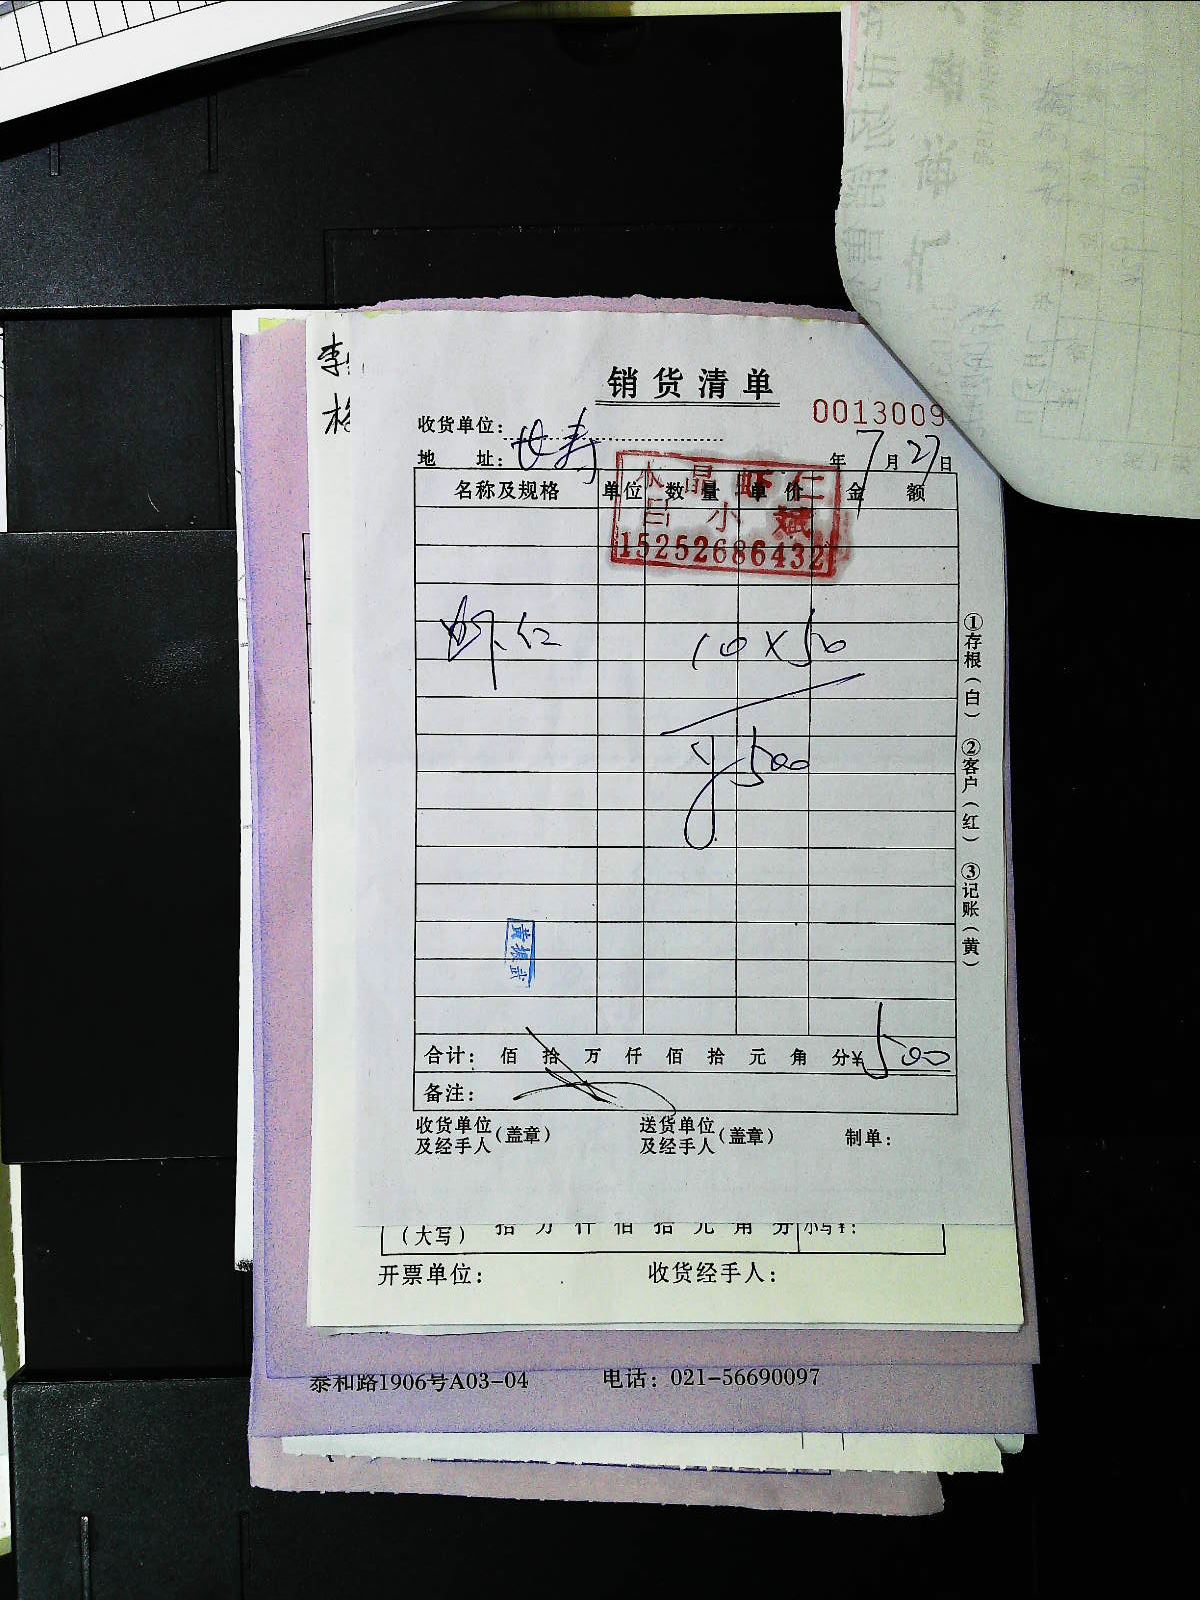 销货清单
0013009
收货单位:
地 址: 长寿
年 7 月 27 日
水晶虾仁
吕小斌
15252686432
名称及规格 单位 数量 单价 金额
虾仁 10×50
¥500
黄振武
合计: 佰 拾 万 仟 佰 拾 元 角 分 ¥ 500
备注:
收货单位及经手人(盖章) 送货单位及经手人(盖章) 制单:
①存根(白) ②客户(红) ③记账(黄)
(大写) 拾 万 仟 佰 拾 元 角 分 小写¥:
开票单位: 收货经手人:
泰和路1906号A03-04 电话: 021-56690097